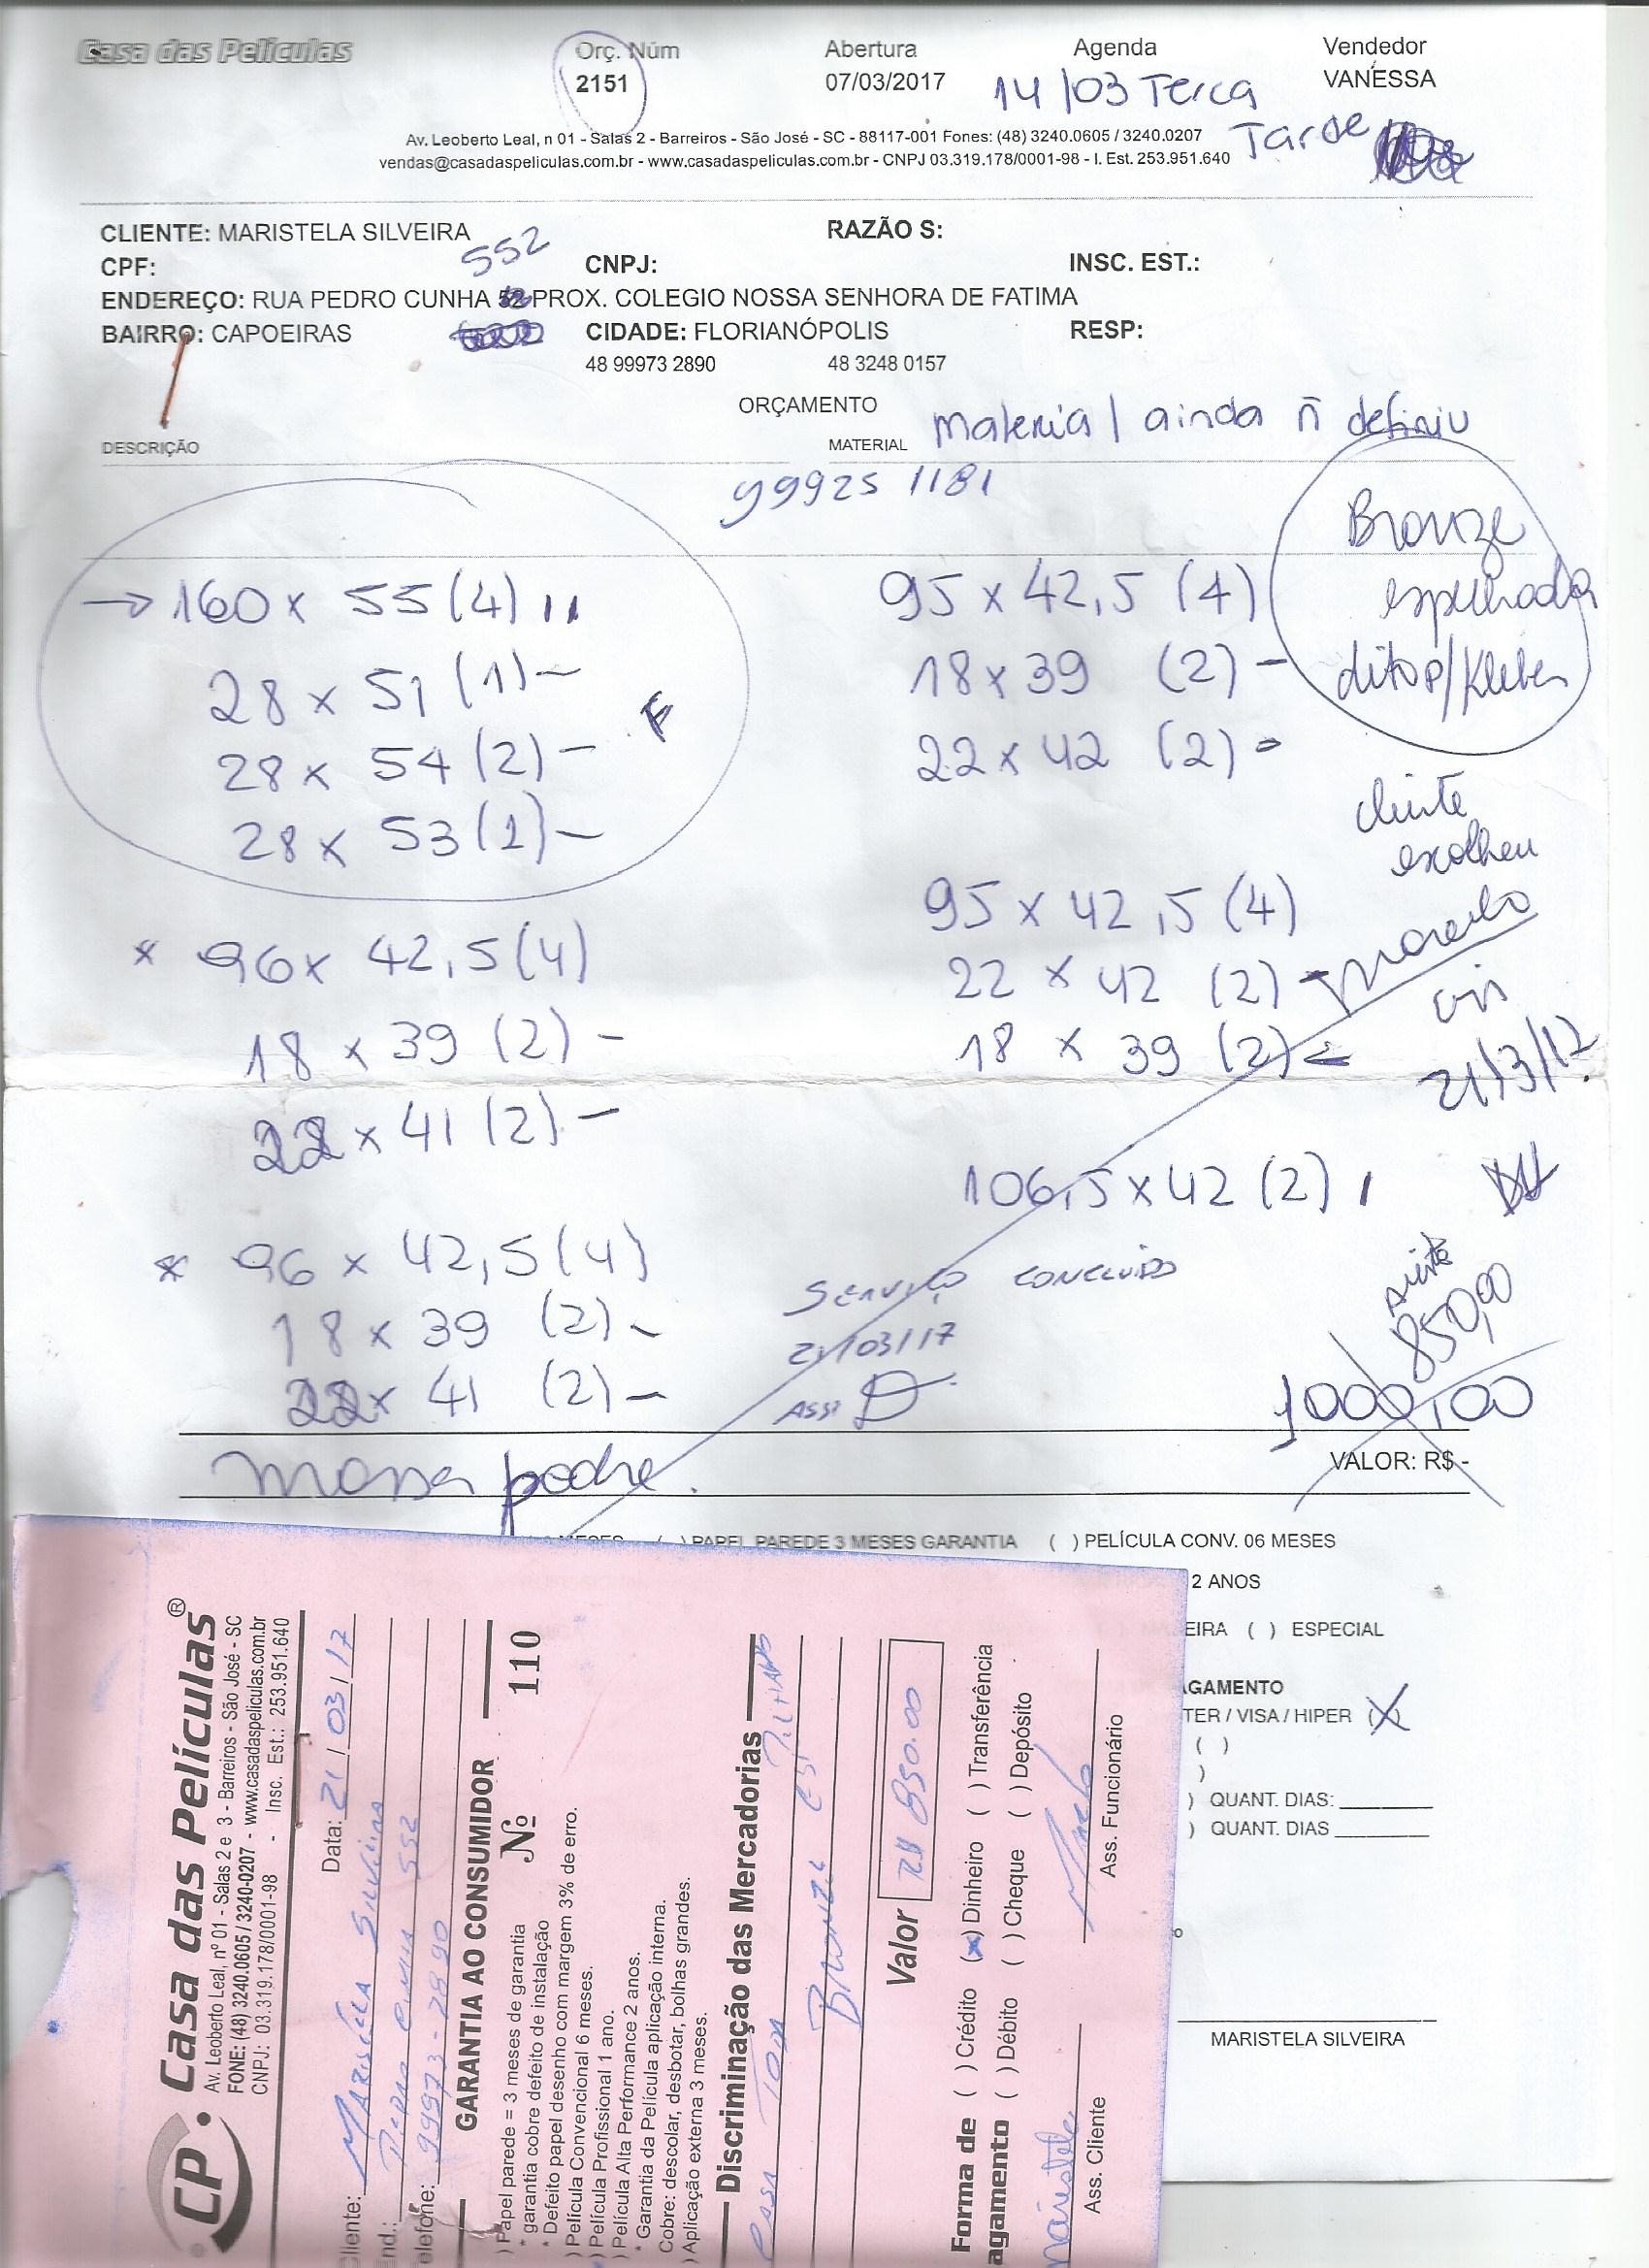 Casa das Películas
Orç. Núm Abertura Agenda Vendedor
2151 07/03/2017 14/03 Terca VANESSA
Tarde
Av. Leoberto Leal, n 01 - Salas 2 - Barreiros - São José - SC - 88117-001 Fones: (48) 3240.0605 / 3240.0207
vendas@casadaspeliculas.com.br - www.casadaspeliculas.com.br - CNPJ 03.319.178/0001-98 - I. Est. 253.951.640
CLIENTE: MARISTELA SILVEIRA RAZÃO S:
552
CPF: CNPJ: INSC. EST.:
ENDEREÇO: RUA PEDRO CUNHA PROX. COLEGIO NOSSA SENHORA DE FATIMA
BAIRRO: CAPOEIRAS CIDADE: FLORIANÓPOLIS RESP:
48 99973 2890 48 3248 0157
ORÇAMENTO
DESCRIÇÃO MATERIAL material ainda ñ definiu
99925 1181
→ 160 x 55 (4) 11
28 x 51 (1) -
28 x 54 (2) -
28 x 53 (1) -
F
* 96 x 42,5 (4)
18 x 39 (2) -
22 x 41 (2) -
* 96 x 42,5 (4)
18 x 39 (2) -
22 x 41 (2) -
95 x 42,5 (4)
18 x 39 (2) -
22 x 42 (2) -
95 x 42,5 (4)
22 x 42 (2) -
18 x 39 (2) -
106,5 x 42 (2) 1
Bronze
espelhada
dito p/ Kleber
cliente
escolheu
21/3/17
Serviço concluido
21/03/17
Ass:
850,00
1000,00
VALOR: R$ -
massa podre.
MESES ( ) PAPEL PAREDE 3 MESES GARANTIA ( ) PELÍCULA CONV. 06 MESES
2 ANOS
EIRA ( ) ESPECIAL
AGAMENTO
TER / VISA / HIPER (X)
( )
)
) QUANT. DIAS:
) QUANT. DIAS
MARISTELA SILVEIRA
CP Casa das Películas®
Av. Leoberto Leal, nº 01 - Salas 2 e 3 - Barreiros - São José - SC
FONE: (48) 3240.0605 / 3240-0207 - www.casadaspeliculas.com.br
CNPJ: 03.319.178/0001-98 - Insc. Est.: 253.951.640
Data: 21/03/17
Cliente: Maristela Silveira
End.: Pedro Cunha 552
Telefone: 99973-2890
GARANTIA AO CONSUMIDOR
Nº 110
) Papel parede = 3 meses de garantia
* garantia cobre defeito de instalação
* Defeito papel desenho com margem 3% de erro.
) Película Convencional 6 meses.
) Película Profissional 1 ano.
) Película Alta Performance 2 anos.
* Garantia da Película aplicação interna.
Cobre: descolar, desbotar, bolhas grandes.
) Aplicação externa 3 meses.
Discriminação das Mercadorias
Bronze
Valor R$ 850.00
Forma de ( ) Crédito (x) Dinheiro ( ) Transferência
agamento ( ) Débito ( ) Cheque ( ) Depósito
Maristela
Ass. Cliente Ass. Funcionário